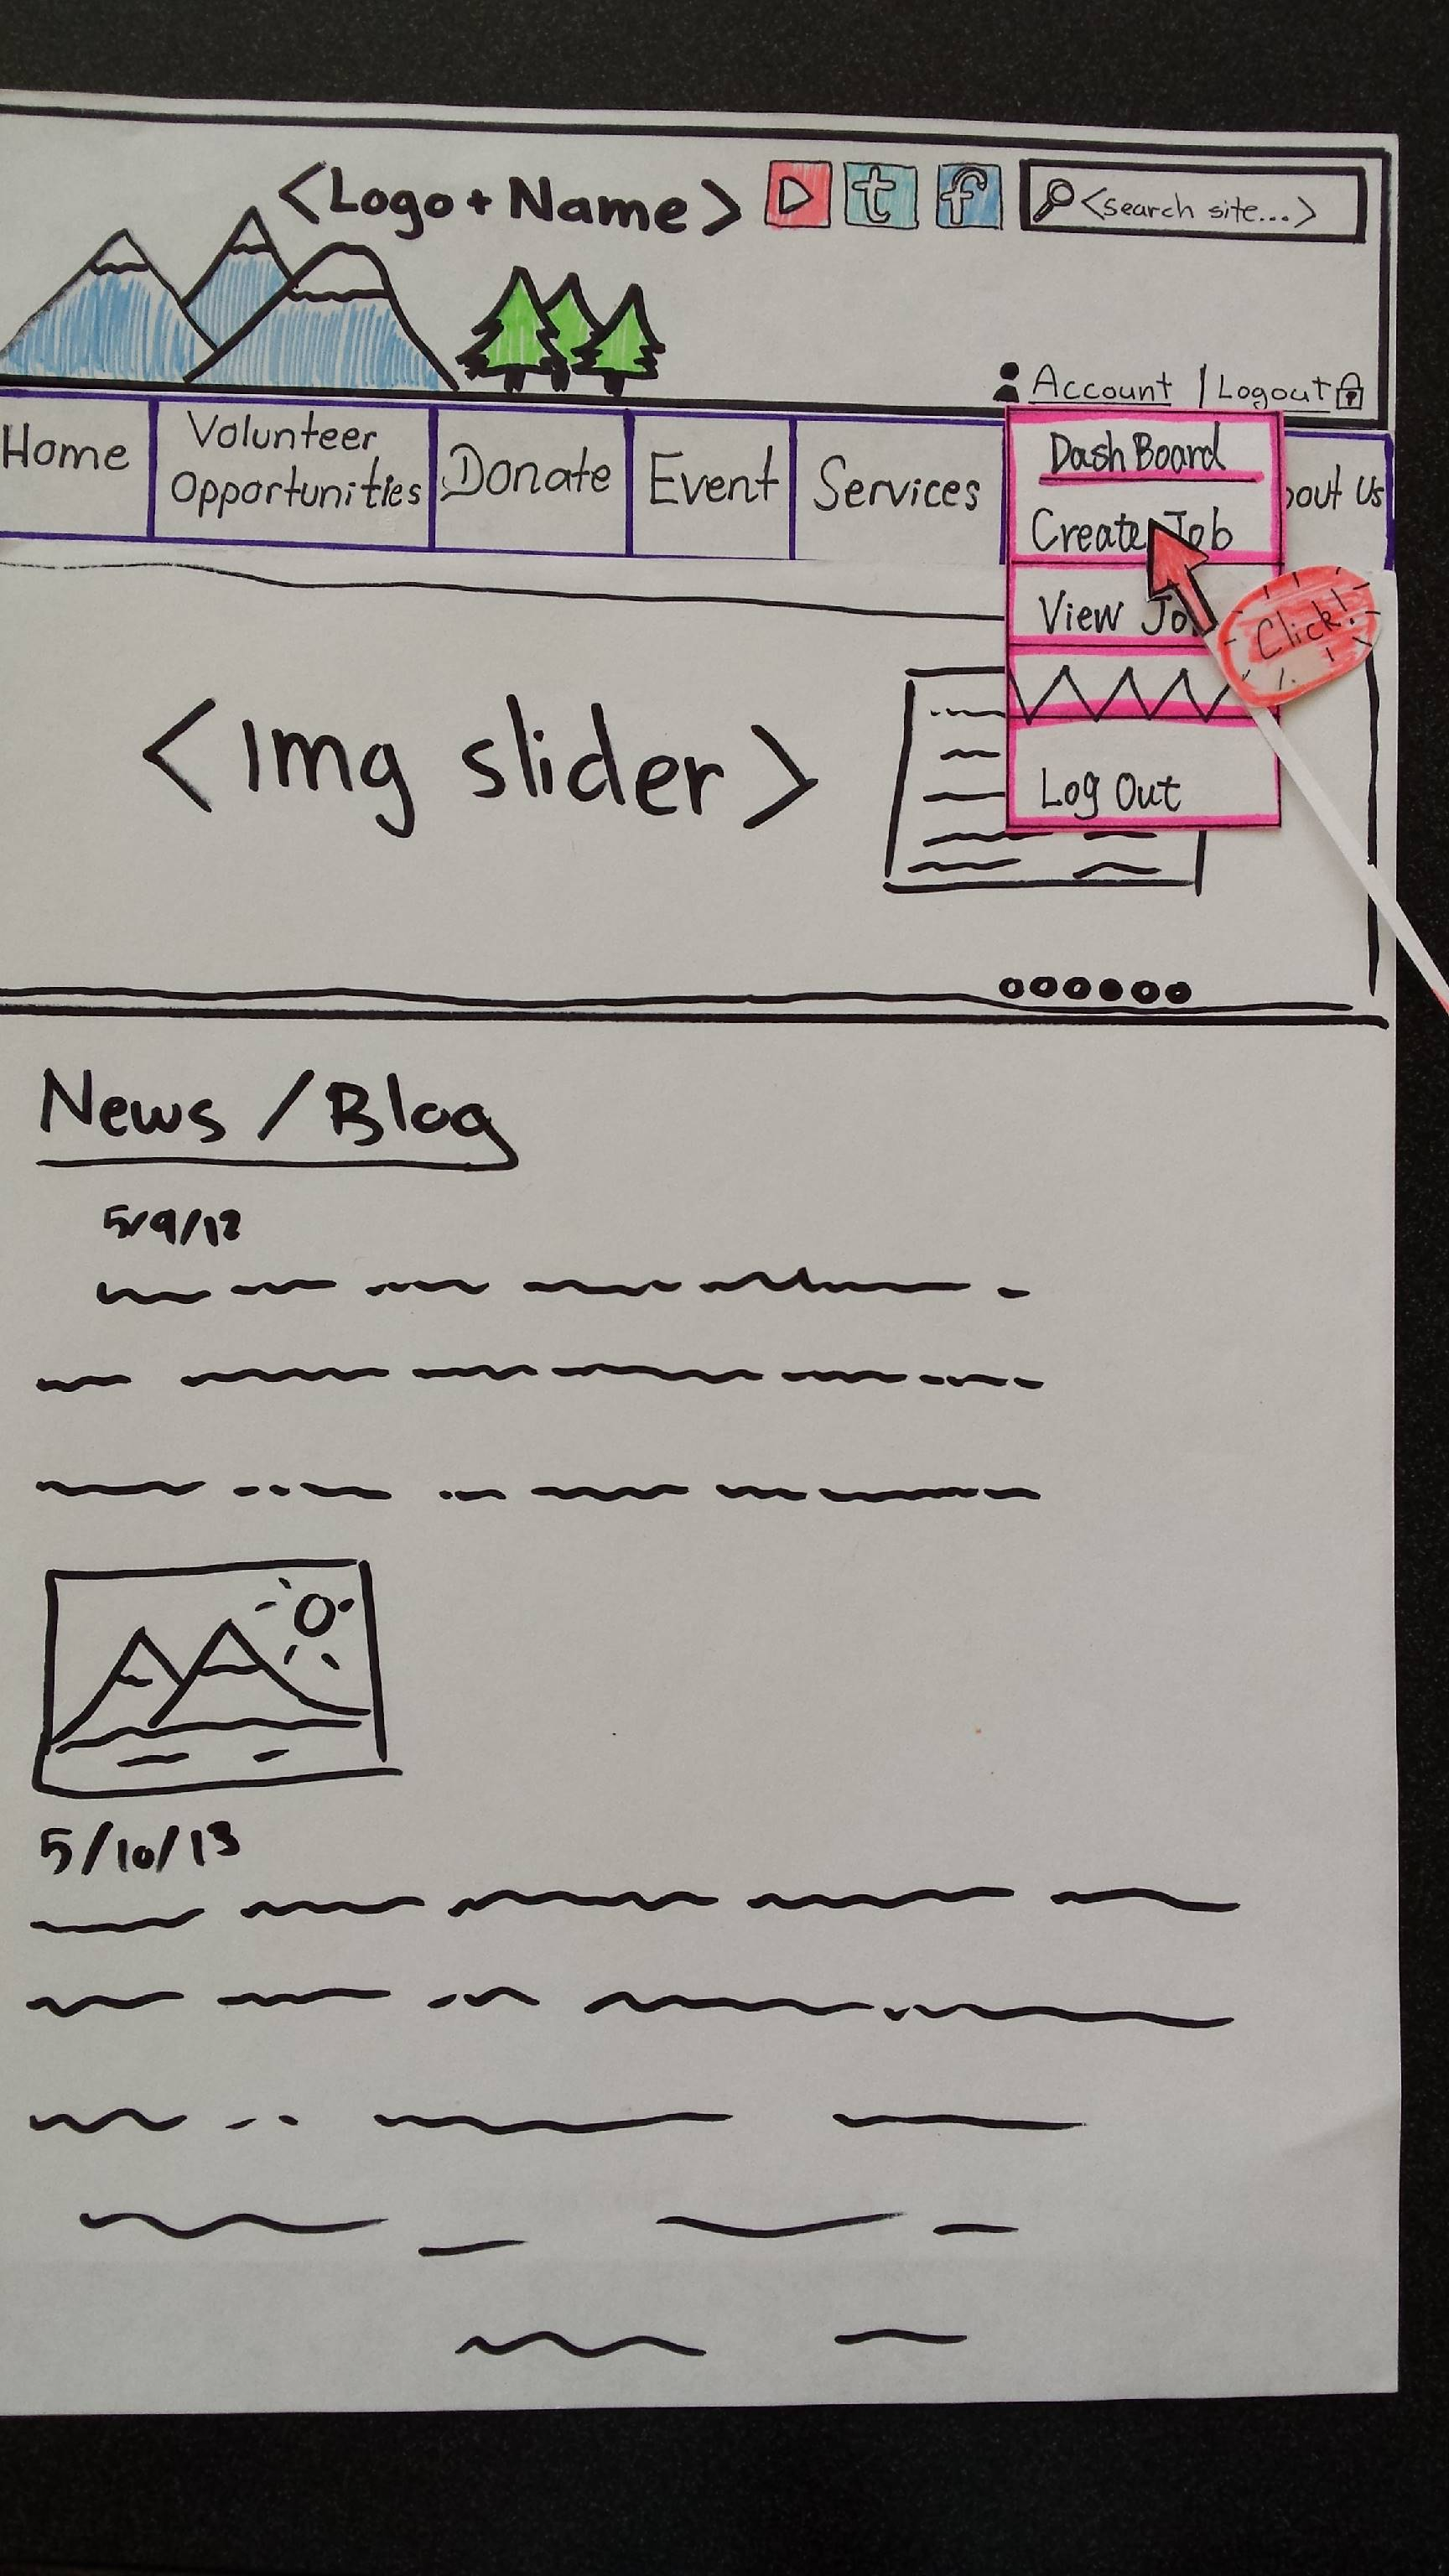 <Logo + Name>
t
f
<search site...>
Account | Logout
Home
Volunteer
Opportunities
Donate
Event
Services
bout Us
DashBoard
Create Job
View Jo
Log Out
Click!
<Img slider>
News / Blog
5/9/12
5/10/13